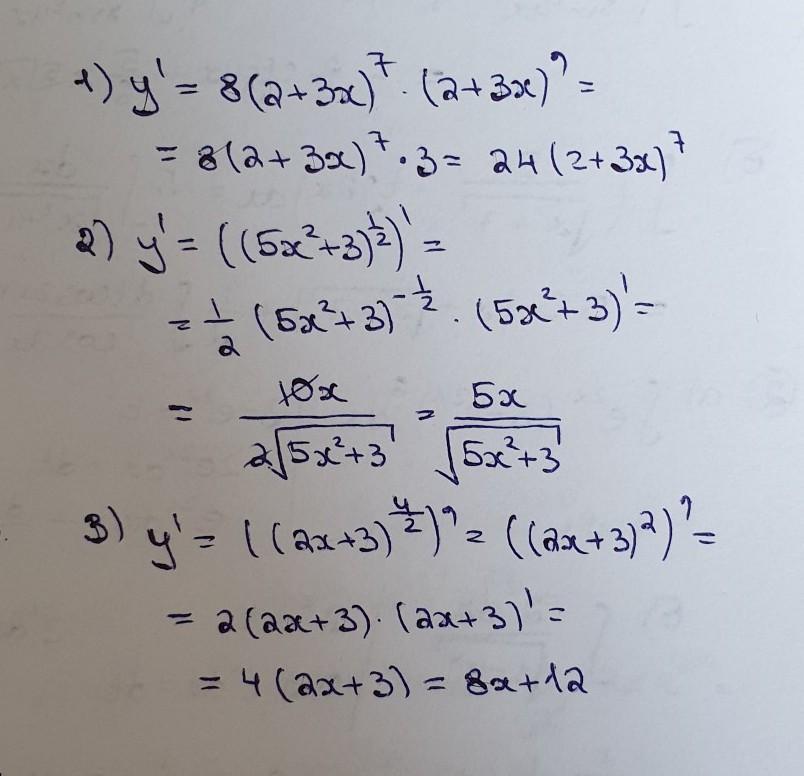 1) y' = 8(2+3x)⁷ · (2+3x)' =
= 8(2+3x)⁷ · 3 = 24(2+3x)⁷
2) y' = ((5x²+3)^(1/2))' =
= 1/2 (5x²+3)^(-1/2) · (5x²+3)' =
= 10x / 2√(5x²+3) = 5x / √(5x²+3)
3) y' = ((2x+3)^(4/2))' = ((2x+3)²)' =
= 2(2x+3) · (2x+3)' =
= 4(2x+3) = 8x+12